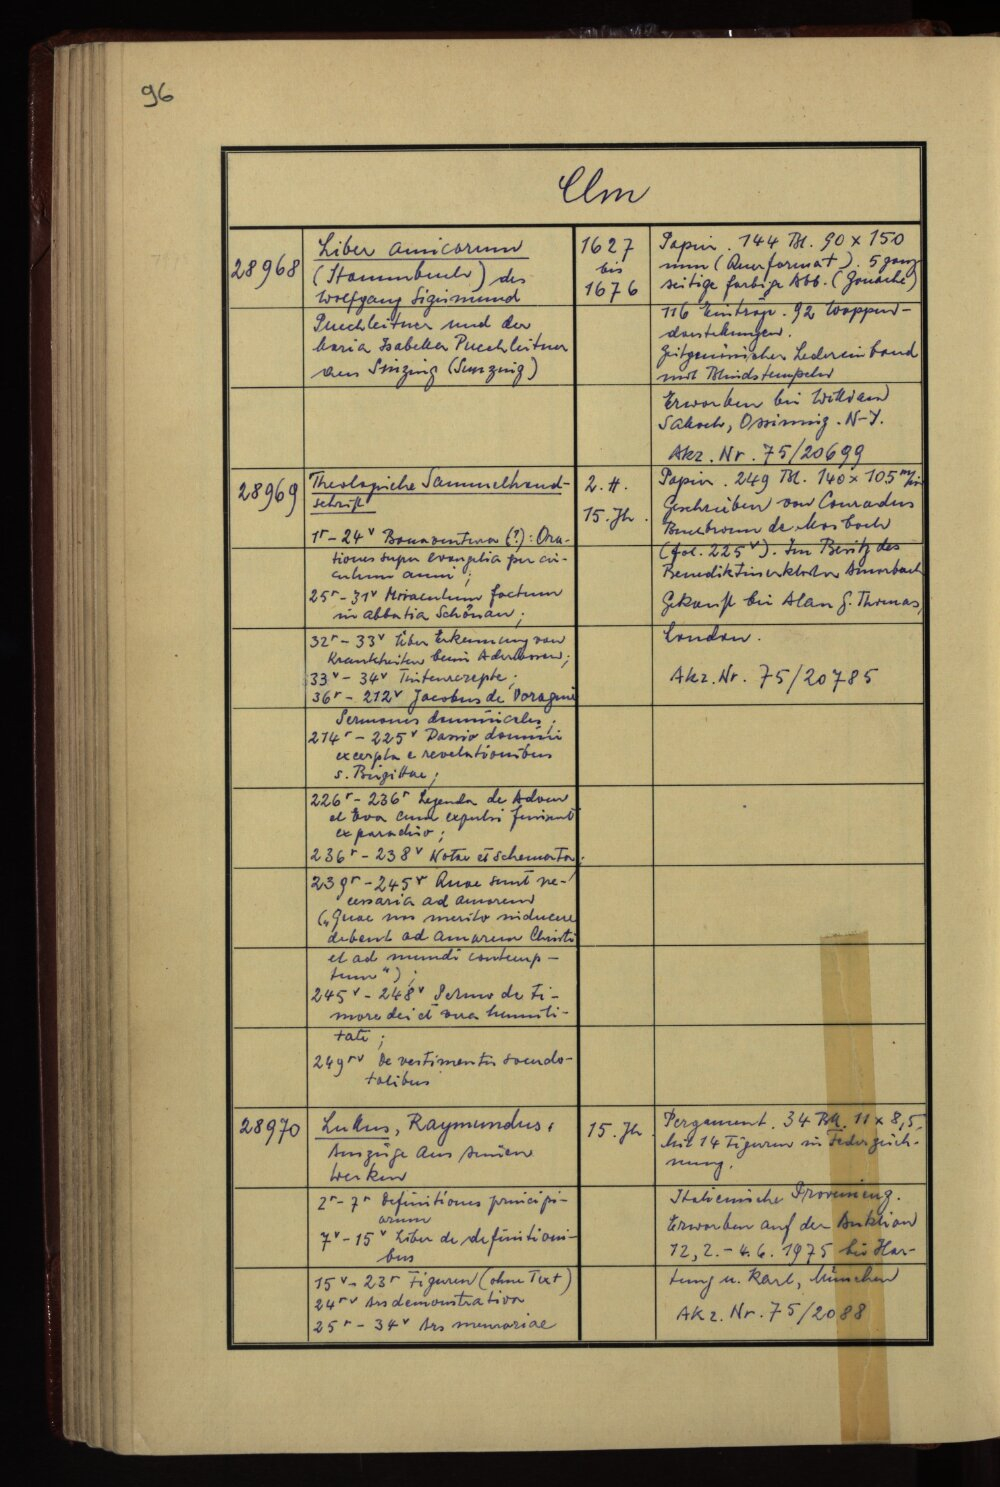 96
Clm
28968
Liber amicorum
(Stammbuch) des
Wolfgang Sigismund
Puechleitner und der
Maria Isabella Puechleitner
aus Sinzing (Sunzing)
1627
bis
1676
Papier. 144 Bl. 90 x 150
mm (Querformat). 5 ganz
seitige farbige Abb. (Gouache)
116 Einträge. 92 Wappen-
darstellungen.
Zeitgenössischer Ledereinband
mit Blindstempeln
Erworben bei William
Salloch, Ossining. N-Y.
Akz. Nr. 75/20699
28969
Theologische Sammelhand-
schrift
1r - 24v Bonaventura (?): Ora-
tiones super evangelia per cir-
culum anni;
25r - 31v Miraculum factum
in abbatia Schönau;
32r - 33v Über Erkennung von
Krankheiten beim Aderlassen;
33v - 34v Tintenrezepte;
36r - 212v Jacobus de Voragine
Sermones dominicales;
214r - 225v Passio domini
excerpta e revelationibus
s. Birgittae;
226r - 236r Legenda de Adam
et Eva cum expulsi fuissent
ex paradiso;
236r - 238v Notae et schemata;
239r - 245v Quae sunt ne-
cessaria ad amorem
("Quae nos merito inducere
debent ad amorem Christi
et ad mundi contemp-
tum");
245v - 248v Sermo de ti-
more dei et vera humili-
tate;
249rv De vestimentis sacerdo-
talibus
2. H.
15. Jh.
Papier. 249 Bl. 140 x 105 mm
Geschrieben von Conradus
de Mosbach
(fol. 225v). Im Besitz des
Benediktinerklosters Amorbach
Gekauft bei Alan G. Thomas,
London.
Akz. Nr. 75/20785
28970
Lullus, Raymundus:
Auszüge aus seinen
Werken
2r - 7r Definitiones principi-
orum
7v - 15v Liber de definitioni-
bus
15v - 23r Figuren (ohne Text)
24rv Ars demonstrativa
25r - 34v Ars memoriae
15. Jh.
Pergament. 34 Bll. 11 x 8,5.
Mit 14 Figuren in Federzeich-
nung.
Italienische Provenienz.
Erworben auf der Auktion
12, 2. - 4. 6. 1975 bei Har-
tung u. Karl, München
Akz. Nr. 75/2088